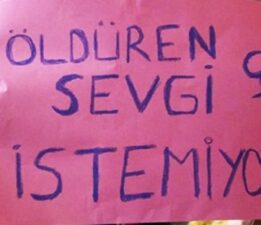 ÖLDÜREN
SEVGİ
İSTEMİYO